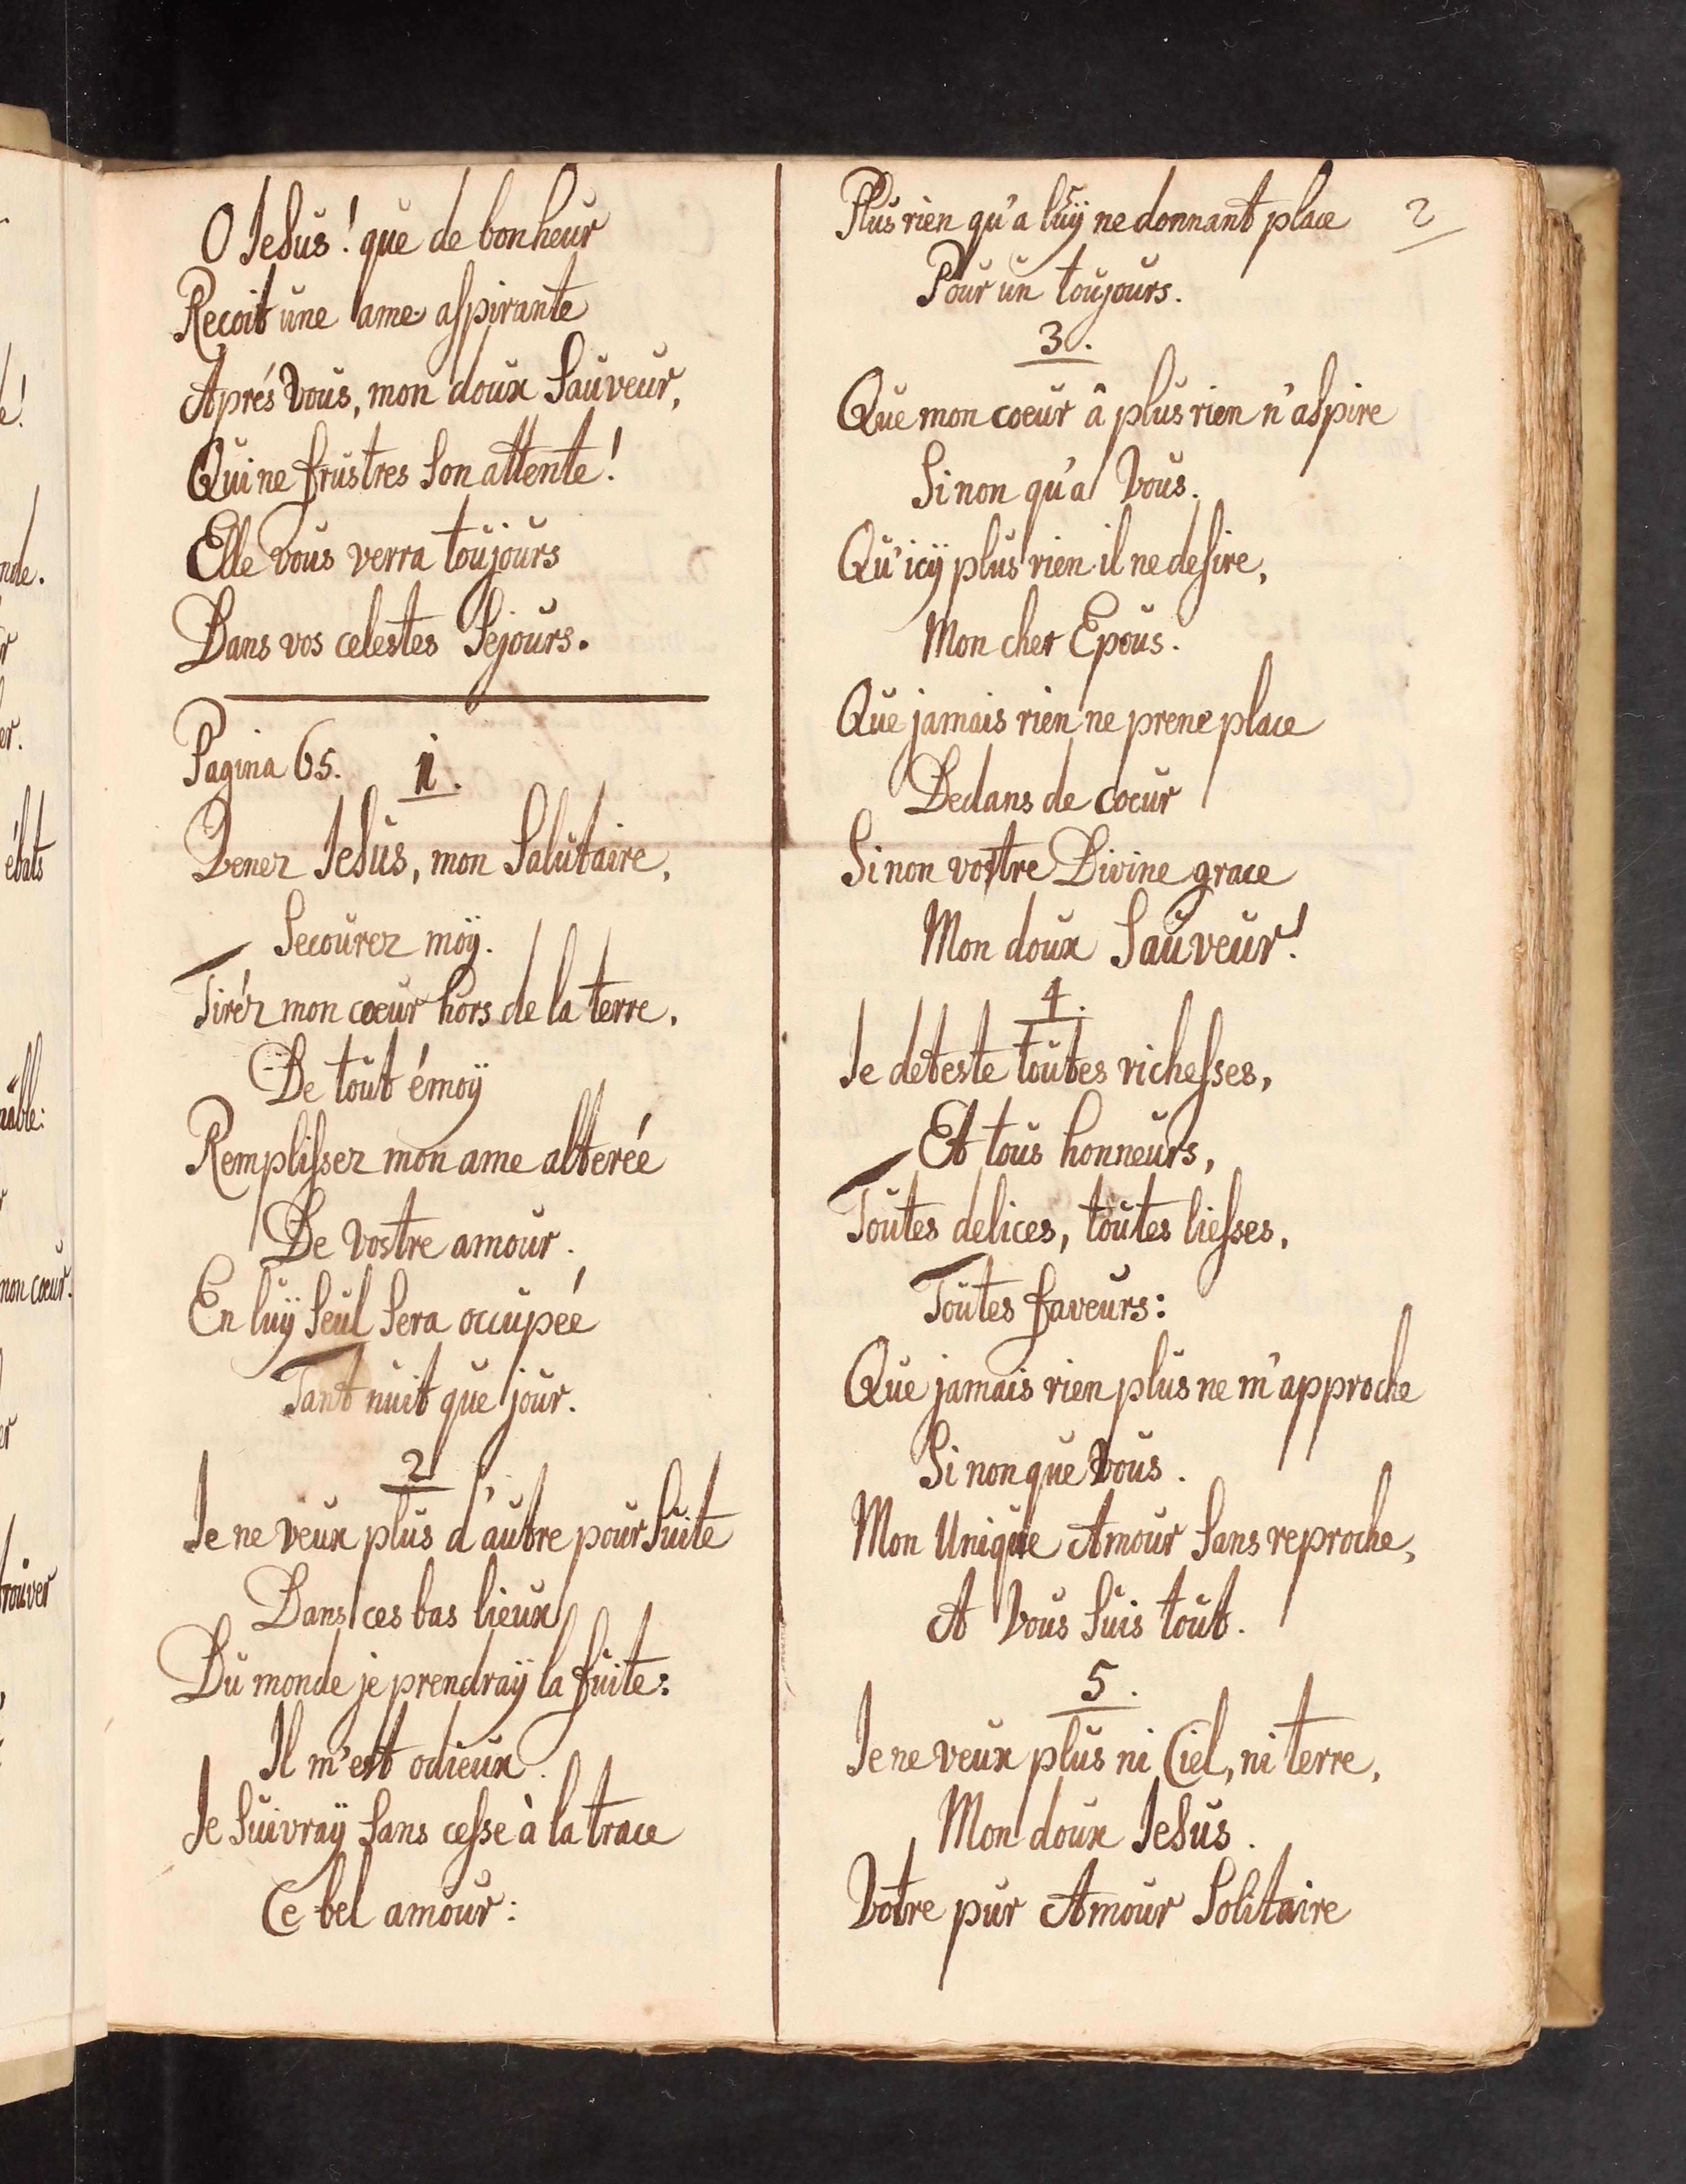 O Jesus! que de bonheur
Recoit une ame aspirante
Aprés Vous, mon doux Sauveur,
Qui ne frustres son attente!
Elle vous verra toujours
Dans vos celestes Sejours.
Pagina 65. 1.
Venez Jesus, mon Salutaire,
Secourez moÿ.
Tiréz mon coeur hors de la terre,
De tout émoÿ
Remplissez mon ame alterée
De vostre amour.
En luÿ seul sera occupée
Tant nuit que jour.
2
Je ne veux plus d'autre poursuite
Dans ces bas lieux
Du monde je prendraÿ la fuite:
Il m'est odieux.
Je suivraÿ sans cesse à la trace
Ce bel amour:
Plus rien qu'a luÿ ne donnant place
Pour un toujours.
3.
Que mon coeur â plus rien n'aspire
Sinon qu'a Vous.
Qu'icÿ plus rien il ne desire,
Mon cher Epous.
Que jamais rien ne prene place
Dedans de coeur
Sinon vostre Divine grace
Mon doux Sauveur!
4.
Je deteste toutes richesses,
Et tous honneurs,
Toutes delices, toutes liesses,
Toutes faveurs:
Que jamais rien plus ne m'approche
Si non que Vous.
Mon Unique Amour sans reproche,
A Vous suis tout.
5.
Je ne veux plus ni Ciel, ni terre,
Mon doux Jesus.
Votre pur Amour Solitaire
2
nde.
ébats
mon coeur.